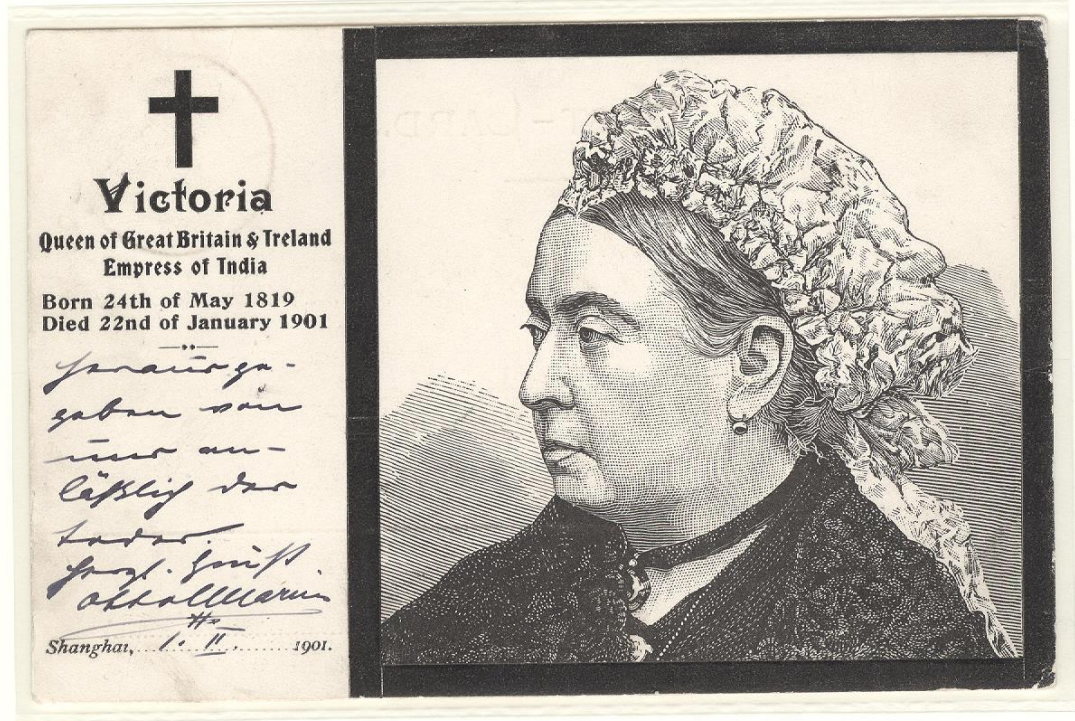 Victoria
Queen of Great Britain & Ireland
Empress of India
Born 24th of May 1819
Died 22nd of January 1901
herausge-
geben von
mir an-
läßlich des
Todes.
Herzl. Gruß
Otto
Shanghai, 1. II. 1901.